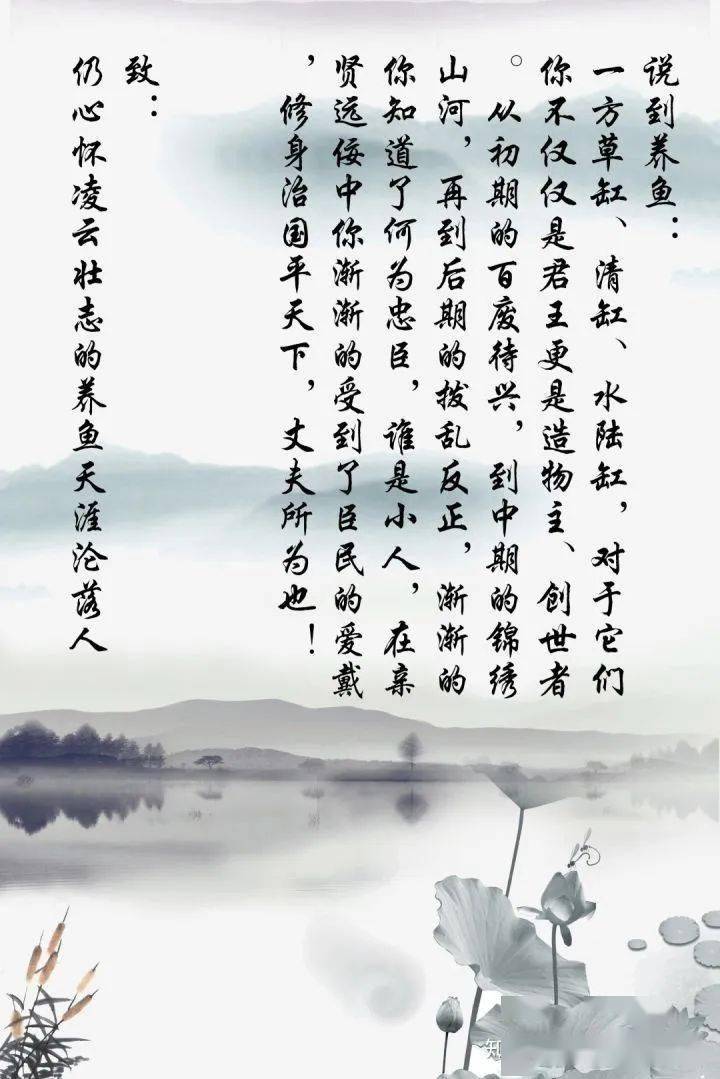 说到养鱼：
一方草缸、清缸、水陆缸，对于它们
你不仅仅是君王更是造物主、创世者
。从初期的百废待兴，到中期的锦绣
山河，再到后期的拨乱反正，渐渐的
你知道了何为忠臣，谁是小人，在亲
贤远佞中你渐渐的受到了臣民的爱戴
，修身治国平天下，丈夫所为也！
致：
仍心怀凌云壮志的养鱼天涯沦落人
知